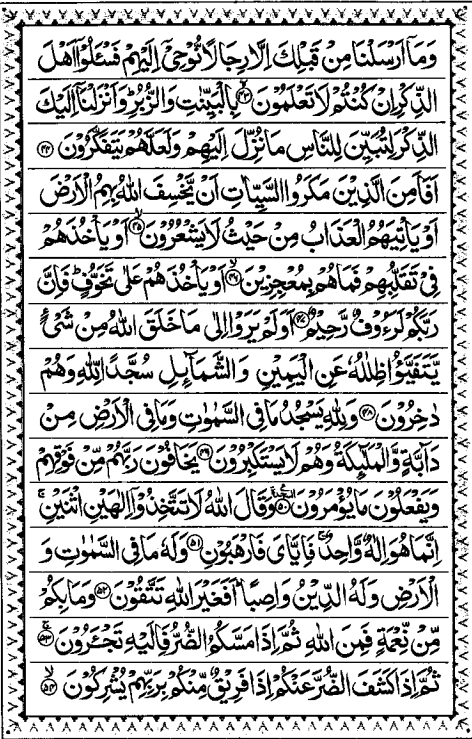 وَمَاۤ اَرۡسَلۡنَا مِنۡ قَبۡلِكَ اِلَّا رِجَالًا نُّوۡحِىۡۤ اِلَيۡهِمۡ فَسۡـَٔلُوۡۤا اَهۡلَ
الذِّكۡرِ اِنۡ كُنۡتُمۡ لَا تَعۡلَمُوۡنَۙ‏ ﴿۴۳﴾ بِالۡبَيِّنٰتِ وَالزُّبُرِؕ وَاَنۡزَلۡنَاۤ اِلَيۡكَ
الذِّكۡرَ لِتُبَيِّنَ لِلنَّاسِ مَا نُزِّلَ اِلَيۡهِمۡ وَلَعَلَّهُمۡ يَتَفَكَّرُوۡنَ‏ ﴿۴۴﴾
اَفَاَمِنَ الَّذِيۡنَ مَكَرُوا السَّيِّاٰتِ اَنۡ يَّخۡسِفَ اللّٰهُ بِهِمُ الۡاَرۡضَ
اَوۡ يَاۡتِيَهُمُ الۡعَذَابُ مِنۡ حَيۡثُ لَا يَشۡعُرُوۡنَۙ‏ ﴿۴۵﴾ اَوۡ يَاۡخُذَهُمۡ
فِىۡ تَقَلُّبِهِمۡ فَمَا هُمۡ بِمُعۡجِزِيۡنَۙ‏ ﴿۴۶﴾ اَوۡ يَاۡخُذَهُمۡ عَلٰى تَخَوُّفٍؕ فَاِنَّ
رَبَّكُمۡ لَرَءُوۡفٌ رَّحِيۡمٌ‏ ﴿۴۷﴾ اَوَلَمۡ يَرَوۡا اِلٰى مَا خَلَقَ اللّٰهُ مِنۡ شَىۡءٍ
يَّتَفَيَّؤُا ظِلٰلُهٗ عَنِ الۡيَمِيۡنِ وَالشَّمَآٮِٕلِ سُجَّدًا لِّلّٰهِ وَهُمۡ
دٰخِرُوۡنَ‏ ﴿۴۸﴾ وَلِلّٰهِ يَسۡجُدُ مَا فِى السَّمٰوٰتِ وَمَا فِى الۡاَرۡضِ مِنۡ
دَآبَّةٍ وَّالۡمَلٰۤٮِٕكَةُ وَهُمۡ لَا يَسۡتَكۡبِرُوۡنَ‏ ﴿۴۹﴾ يَخَافُوۡنَ رَبَّهُمۡ مِّنۡ فَوۡقِهِمۡ
وَيَفۡعَلُوۡنَ مَا يُؤۡمَرُوۡنَ۩‏ ﴿۵۰﴾ وَقَالَ اللّٰهُ لَا تَتَّخِذُوۡۤا اِلٰهَيۡنِ اثۡنَيۡنِۚ
اِنَّمَا هُوَ اِلٰـهٌ وَّاحِدٌۚ فَاِيَّاىَ فَارۡهَبُوۡنِ‏ ﴿۵۱﴾ وَلَهٗ مَا فِى السَّمٰوٰتِ وَ
الۡاَرۡضِ وَلَهُ الدِّيۡنُ وَاصِبًاؕ اَفَغَيۡرَ اللّٰهِ تَتَّقُوۡنَ‏ ﴿۵۲﴾ وَمَا بِكُمۡ
مِّنۡ نِّعۡمَةٍ فَمِنَ اللّٰهِ ثُمَّ اِذَا مَسَّكُمُ الضُّرُّ فَاِلَيۡهِ تَجۡئَرُوۡنَۚ‏ ﴿۵۳﴾
ثُمَّ اِذَا كَشَفَ الضُّرَّ عَنۡكُمۡ اِذَا فَرِيۡقٌ مِّنۡكُمۡ بِرَبِّهِمۡ يُشۡرِكُوۡنَۙ‏ ﴿۵۴﴾